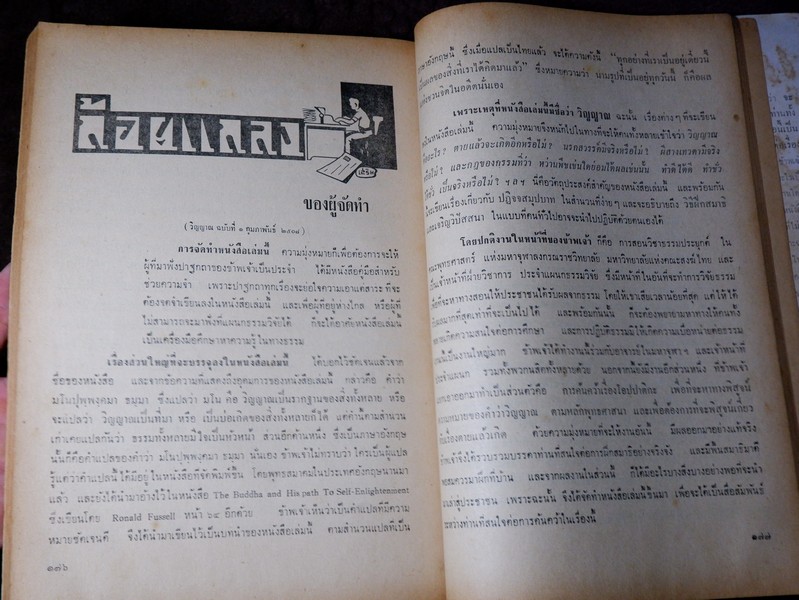 ถ้อยแถลง
ของผู้จัดทำ
(วิญญาณ ฉบับที่ ๑ กุมภาพันธ์ ๒๕๐๘)
การจัดทำหนังสือเล่มนี้ ความมุ่งหมายก็เพื่อต้องการจะให้
ผู้ที่มาฟังปาฐกถาของข้าพเจ้าเป็นประจำ ได้มีหนังสือคู่มือสำหรับ
ช่วยความจำ เพราะปาฐกถาทุกเรื่องจะย่อใจความเอาแต่สาระ ที่จะ
ต้องจดจำเรียนลงในหนังสือเล่มนี้ และเพื่อผู้ที่อยู่ห่างไกล หรือผู้ที่
ไม่สามารถจะมาฟังที่แผนกธรรมวิจัยได้ ก็จะได้อาศัยหนังสือเล่มนี้
เป็นเครื่องมือศึกษาหาความรู้ในทางธรรม
เรื่องส่วนใหญ่ที่จะบรรจุลงในหนังสือเล่มนี้ ได้บอกไว้ชัดเจนแล้วจาก
ชื่อของหนังสือ และจากข้อความที่แสดงถึงอุดมการของหนังสือเล่มนี้ กล่าวคือ คำว่า
มโนปุพฺพงฺคมา ธมฺมา ซึ่งแปลว่า มโน คือ วิญญาณเป็นรากฐานของสิ่งทั้งหลาย หรือ
จะแปลว่า วิญญาณเป็นที่มา หรือ เป็นบ่อเกิดของสิ่งทั้งหลายก็ได้ แต่คำนี้ตามสำนวน
เก่าเคยแปลกันว่า ธรรมทั้งหลายมีใจเป็นหัวหน้า ส่วนอีกด้านหนึ่ง ซึ่งเป็นภาษาอังกฤษ
นั้นก็คือคำแปลของคำว่า มโนปุพฺพงฺคมา ธมฺมา นั่นเอง ข้าพเจ้าไม่ทราบว่า ใครเป็นผู้แปล
รู้แต่ว่าคำแปลนี้ได้มีอยู่ในหนังสือที่จัดพิมพ์ขึ้น โดยพุทธสมาคมในประเทศอังกฤษนานมา
แล้ว และยังได้นำมาอ้างไว้ในหนังสือ The Buddha and His path To Self-Enlightenment
ซึ่งเขียนโดย Ronald Fussell หน้า ๖๔ อีกด้วย ข้าพเจ้าเห็นว่าเป็นคำแปลที่มีความ
หมายชัดเจนดี จึงได้นำมาเขียนไว้เป็นบทนำของหนังสือเล่มนี้ ตามสำนวนแปลที่เป็น
๑๗๖
ภาษาอังกฤษนี้ ซึ่งเมื่อแปลเป็นไทยแล้ว จะได้ความดังนี้ "ทุกอย่างที่เราเป็นอยู่เดี๋ยวนี้
เป็นผลของสิ่งที่เราได้คิดมาแล้ว" ซึ่งหมายความว่า นามรูปที่เป็นอยู่ทุกวันนี้ ก็คือผล
จิตในอดีตนั่นเอง
เพราะเหตุที่หนังสือเล่มนี้มีชื่อว่า วิญญาณ ฉะนั้น เรื่องต่างๆ ที่จะเขียน
ในหนังสือเล่มนี้ ความมุ่งหมายจึงหนักไปในทางที่จะให้คนทั้งหลายเข้าใจว่า วิญญาณ
คืออะไร? ตายแล้วจะเกิดอีกหรือไม่? นรกสวรรค์มีจริงหรือไม่? ผีสางเทวดามีจริง
หรือไม่? และกฎของกรรมที่ว่า หว่านพืชเช่นใดย่อมได้ผลเช่นนั้น ทำดีได้ดี ทำชั่ว
ได้ชั่ว เป็นจริงหรือไม่? ฯลฯ นี่คือวัตถุประสงค์สำคัญของหนังสือเล่มนี้ และพร้อมกัน
จะเรียนเรื่องเกี่ยวกับ ปฏิจจสมุปบาท ในสำนวนที่ง่ายๆ และจะอธิบายถึง วิธีฝึกสมาธิ
และเจริญวิปัสสนา ในแบบที่คนทั่วไปอาจจะนำไปปฏิบัติด้วยตนเองได้
โดยปกติงานในหน้าที่ของข้าพเจ้า ก็คือ การสอนวิชาธรรมประยุกต์ ใน
คณะพุทธศาสตร์ แห่งมหาจุฬาลงกรณราชวิทยาลัย มหาวิทยาลัยแห่งคณะสงฆ์ไทย และ
เป็นเจ้าหน้าที่ฝ่ายวิชาการ ประจำแผนกธรรมวิจัย ซึ่งมีหน้าที่ในอันที่จะทำการวิจัยธรรม
เพื่อที่จะหาทางสอนให้ประชาชนได้รับผลจากธรรม โดยให้เขาเสียเวลาน้อยที่สุด แต่ให้ได้
ผลมากที่สุดเท่าที่จะเป็นไปได้ และพร้อมกันนั้น ก็จะต้องพยายามหาทางให้คนทั้ง
หลายเกิดความสนใจต่อการศึกษา และการปฏิบัติธรรมมิให้เกิดความเบื่อหน่ายต่อธรรม
งานนี้เป็นงานใหญ่มาก ข้าพเจ้าได้ทำงานนี้ร่วมกับอาจารย์ในมหาจุฬาฯ และเจ้าหน้าที่
ประจำแผนก รวมทั้งพวกนิสิตทั้งหลายด้วย นอกจากนี้ยังมีงานอีกส่วนหนึ่ง ที่ข้าพเจ้า
อยากจะทำเป็นส่วนตัวคือ การค้นคว้าเรื่องโอปปาติกะ เพื่อที่จะหาทางพิสูจน์
ความหมายของคำว่าวิญญาณ ตามหลักพุทธศาสนา และเพื่อต้องการที่จะพิสูจน์เกี่ยว
กับเรื่องตายแล้วเกิด ด้วยความมุ่งหมายที่จะให้งานอันนี้ มีผลออกมาอย่างแท้จริง
ข้าพเจ้าจึงได้รวบรวมบรรดาท่านที่สนใจต่อการฝึกสมาธิอย่างจริงจัง และมีพื้นสมาธิมาดี
พอสมควรมาฝึกที่บ้าน และจากผลงานในส่วนนี้ ก็ได้มีอะไรบางสิ่งบางอย่างพอที่จะนำ
มาเล่าสู่ประชาชน เพราะฉะนั้น จึงได้จัดทำหนังสือเล่มนี้ขึ้นมา เพื่อจะได้เป็นสื่อสัมพันธ์
ระหว่างท่านที่สนใจต่อการค้นคว้าในเรื่องนี้
๑๗๗